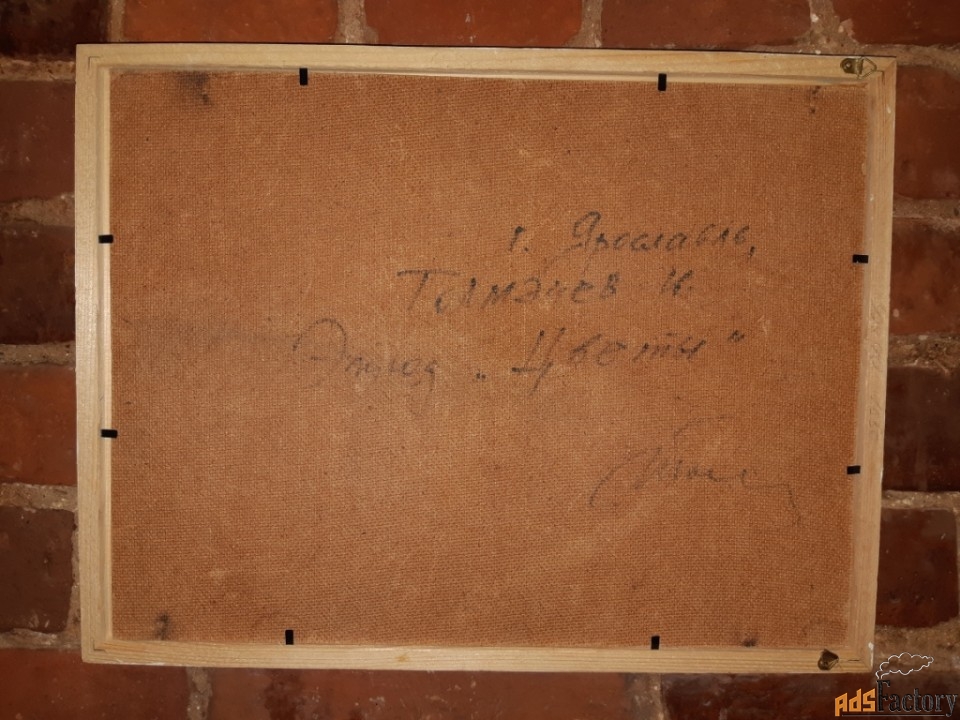 г. Ярославль,
Толмачев И.
Этюд „Цветы"
AdsFactory